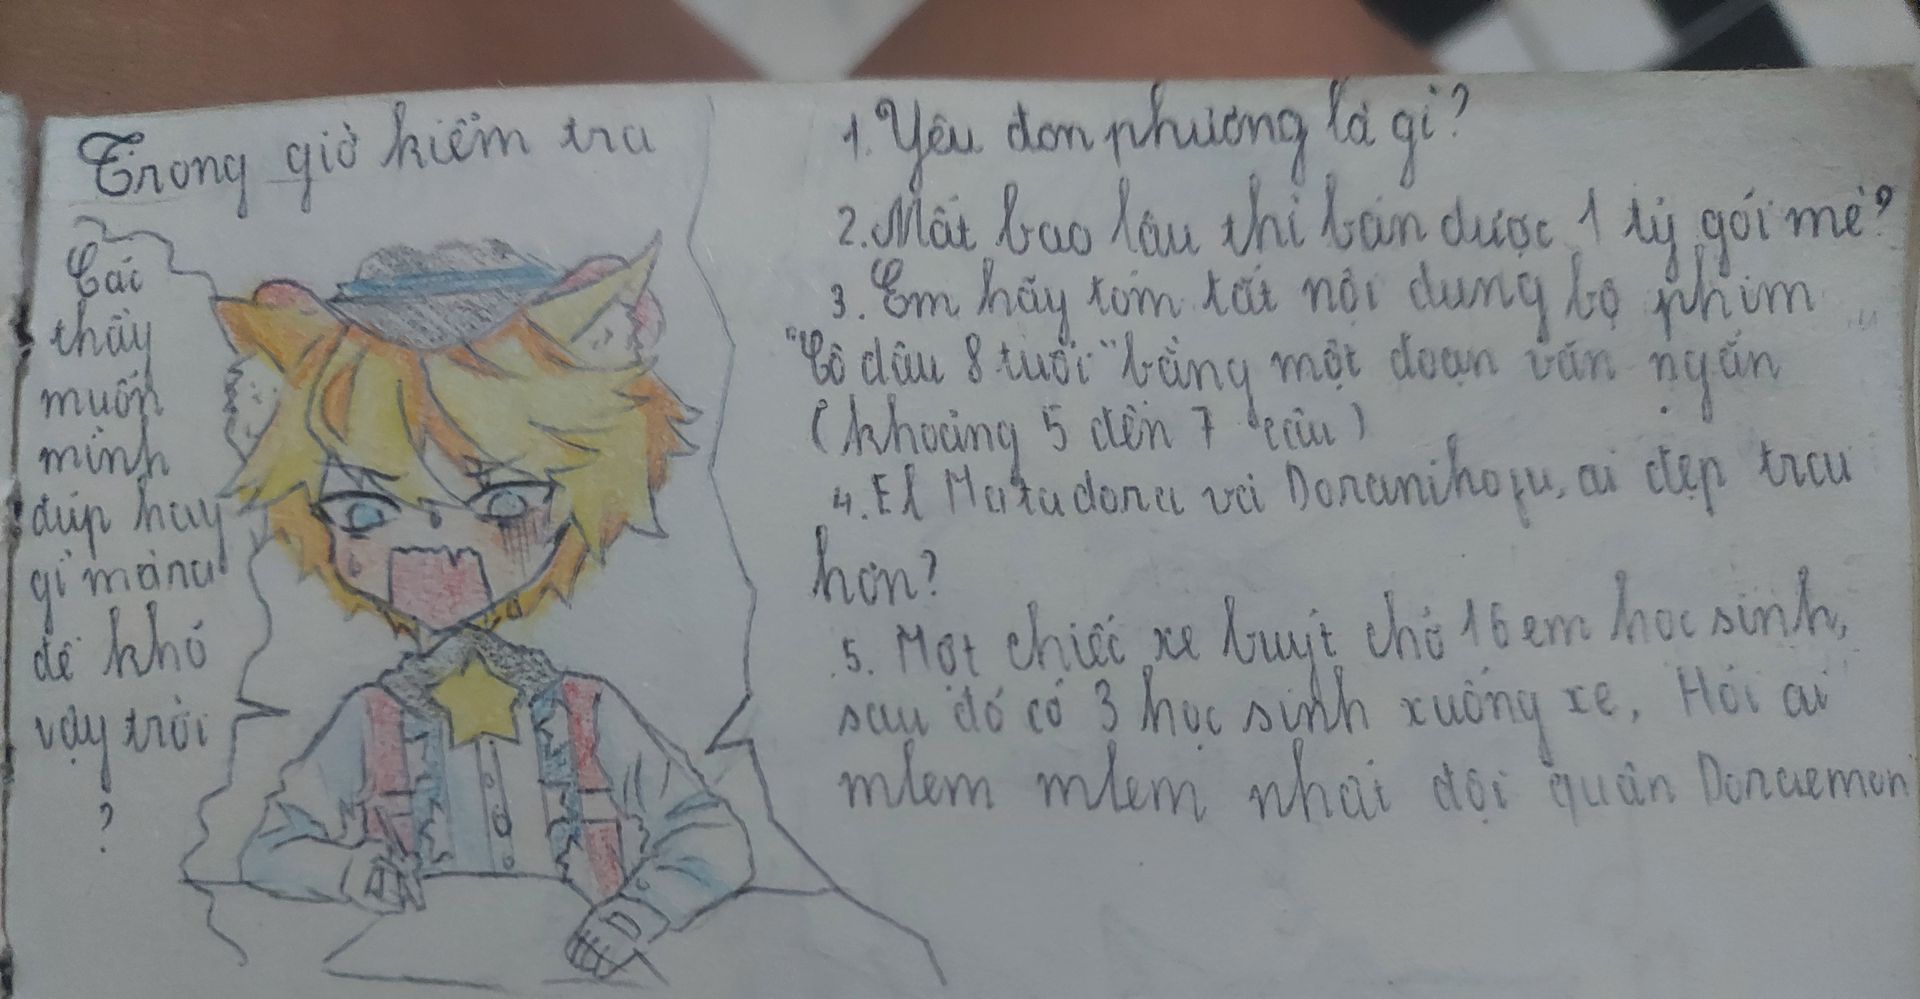 Trong giờ kiểm tra
Cái
thầy
muốn
mình
đúp hay
gì mà ra
đề khó
vậy trời
?
1. Yêu đơn phương là gì?
2. Mất bao lâu thì bán được 1 tỷ gói mè?
3. Em hãy tóm tắt nội dung bộ phim
"Cô dâu 8 tuổi" bằng một đoạn văn ngắn
(khoảng 5 đến 7 câu)
4. El Matadora và Doranikofu, ai đẹp trai
hơn?
5. Một chiếc xe buýt chở 16 em học sinh,
sau đó có 3 học sinh xuống xe. Hỏi ai
mlem mlem nhất đội quân Doraemon